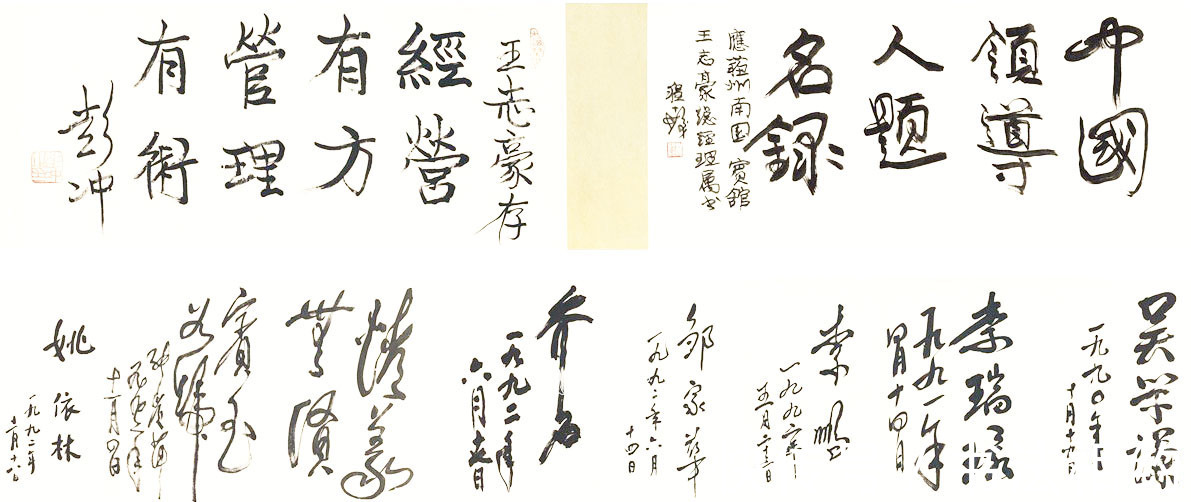 中國
領導
人題
名錄
應蘇州南園賓館
王志豪總經理属书
王志豪存
經營
有方
管理
有術
彭冲
吴学谦
一九九〇年
十月十九日
李瑞環
一九九一年
四月十四日
李鹏
邹家华
一九九二年六月
十四日
乔石
一九九二年
六月
情義
無價
賓至
如歸
十二月四日
姚依林
一九九二年